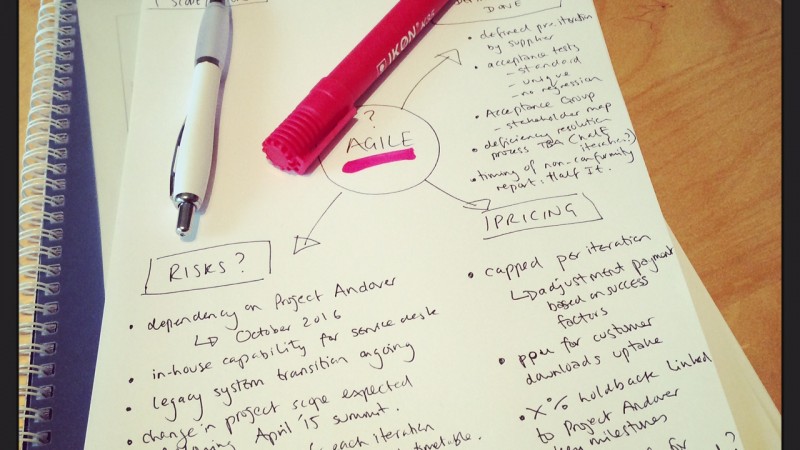 DONE
• defined per iteration
by supplier
• acceptance tests
- standard
- unique
- no regression
• Acceptance Group
- stakeholder map
• deficiency resolution
process TBA (half
iteration?)
• timing of non-conformity
report: Half It.
IKON
?
AGILE
PRICING
• capped per iteration
↳ adjustment payment
based on success
factors
• ppu for customer
downloads uptake
• X% holdback linked
to Project Andover
key milestones
for
RISKS?
• dependency on Project Andover
↳ October 2016
• in-house capability for service desk
• legacy system transition ongoing
• change in project scope expected
April '15 summit.
each iteration
timetable.